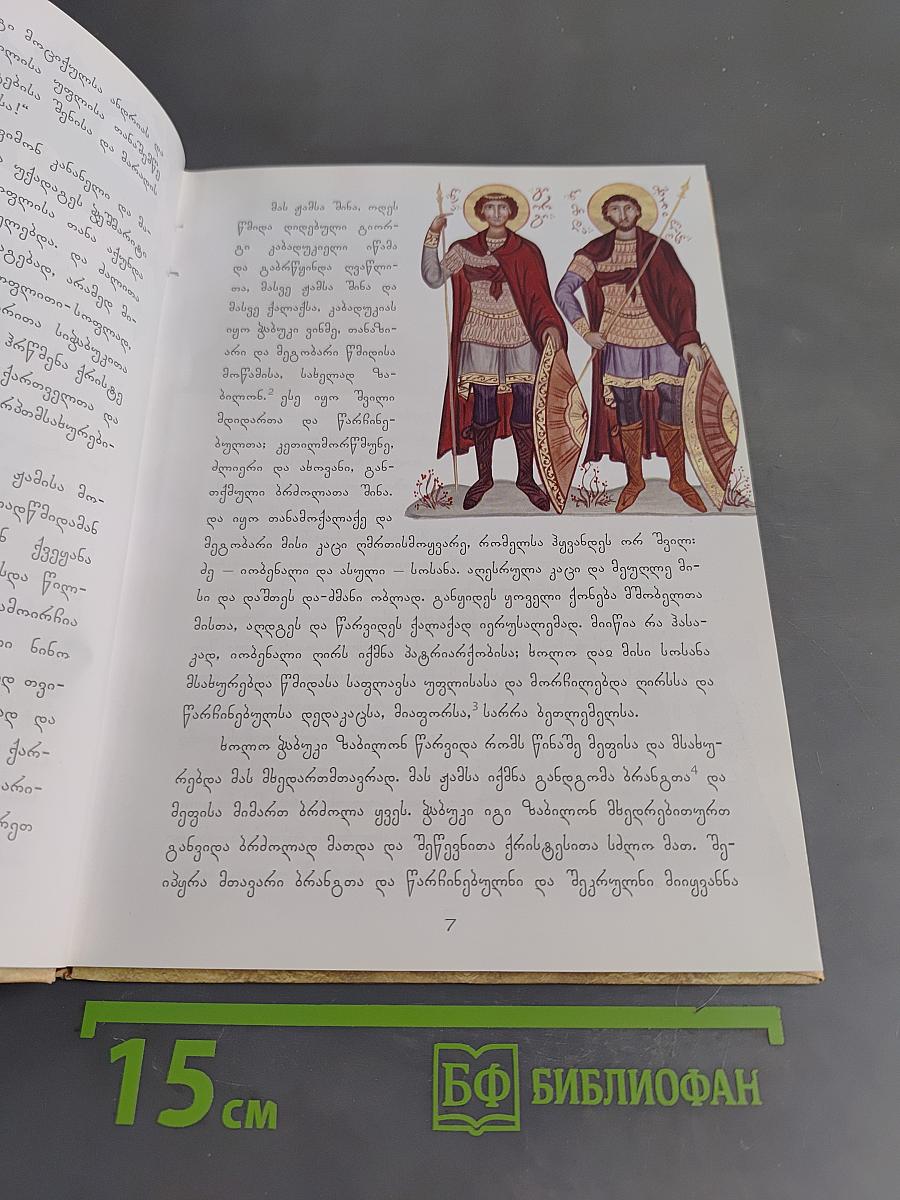 გი მოციქულსა ანდრიას და
უფლისა თანაშემწე
შენისა და მარადის
სა!“
სიმონ კანანელი და მა-
უქადაგეს ჭეშმარიტი
თანა აქუნდა
და ძალითა
არამედ მი-
სოფლითი-სოფლად,
სიჭაბუკითა
ჰრწმენა ქრისტე
ქართველთა და
ჟამისა მო-
ქვეყანა
და წილ-
გამოირჩია
ნინო
თვი-
და
ქარ-
მას ჟამსა შინა, ოდეს
წმიდა დიდებული გიორ-
გი კაბადუკიელი იწამა
და გაბრწყინდა ღვაწლი-
თა, მასვე ჟამსა შინა და
მასვე ქალაქსა, კაბადუკიას
იყო ჭაბუკი ვინმე, თანაზი-
არი და მეგობარი წმიდისა
მოწამისა, სახელად ზა-
ბილონ.2 ესე იყო შვილი
მდიდართა და წარჩინე-
ბულთა; კეთილმორწმუნე,
ძლიერი და ახოვანი, გან-
თქმული ბრძოლათა შინა.
და იყო თანამოქალაქე და
მეგობარი მისი კაცი ღმრთისმოყვარე, რომელსა ჰყვანდეს ორ შვილ:
ძე — იობენალი და ასული — სოსანა. აღესრულა კაცი და მეუღლე მი-
სი და დაშთეს და-ძმანი ობლად. განყიდეს ყოველი ქონება მშობელთა
მისთა, აღდგეს და წარვიდეს ქალაქად იერუსალემად. მიიწია რა ჰასა-
კად, იობენალი ღირს იქმნა პატრიარქობისა; ხოლო დაჲ მისი სოსანა
მსახურებდა წმიდასა საფლავსა უფლისასა და მორჩილებდა ღირსსა და
წარჩინებულსა დედაკაცსა, მიაფორსა,3 სარრა ბეთლემელსა.
ხოლო ჭაბუკი ზაბილონ წარვიდა რომს წინაშე მეფისა და მსახუ-
რებდა მას მხედართმთავრად. მას ჟამსა იქმნა განდგომა ბრანგთა4 და
მეფისა მიმართ ბრძოლა ყვეს. ჭაბუკი იგი ზაბილონ მხედრებითურთ
განვიდა ბრძოლად მათდა და შეწევნითა ქრისტესითა სძლო მათ. შე-
იპყრა მთავარი ბრანგთა და წარჩინებულნი და შეკრულნი მიიყვანნა
7
15 см
БФ БИБЛИОФАН